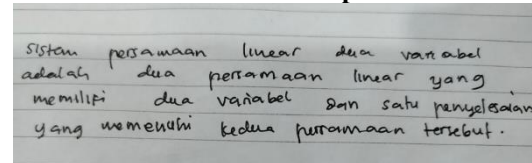 sistem persamaan linear dua variabel
adalah dua persamaan linear yang
memiliki dua variabel dan satu penyelesaian
yang memenuhi kedua persamaan tersebut.